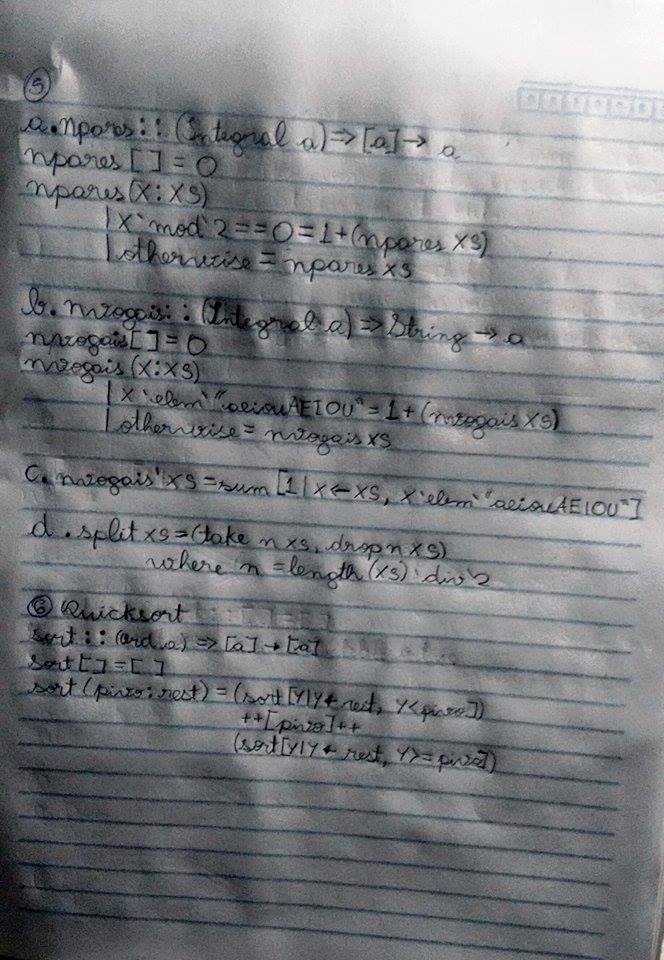 5
a. npares :: (Integral a) => [a] → a
npares [] = 0
npares (x:xs)
| x `mod` 2 == 0 = 1 + (npares xs)
| otherwise = npares xs
b. nvogais :: (Integral a) => String → a
nvogais [] = 0
nvogais (x:xs)
| x `elem` "aeiouAEIOU" = 1 + (nvogais xs)
| otherwise = nvogais xs
c. nvogais' xs = sum [1 | x ← xs, x `elem` "aeiouAEIOU"]
d. split xs = (take n xs, drop n xs)
where n = length (xs) `div` 2
6 Quicksort
sort :: (ord a) => [a] → [a]
sort [] = []
sort (pivo:rest) = (sort [y | y ← rest, y < pivo])
++ [pivo] ++
(sort [y | y ← rest, y >= pivo])